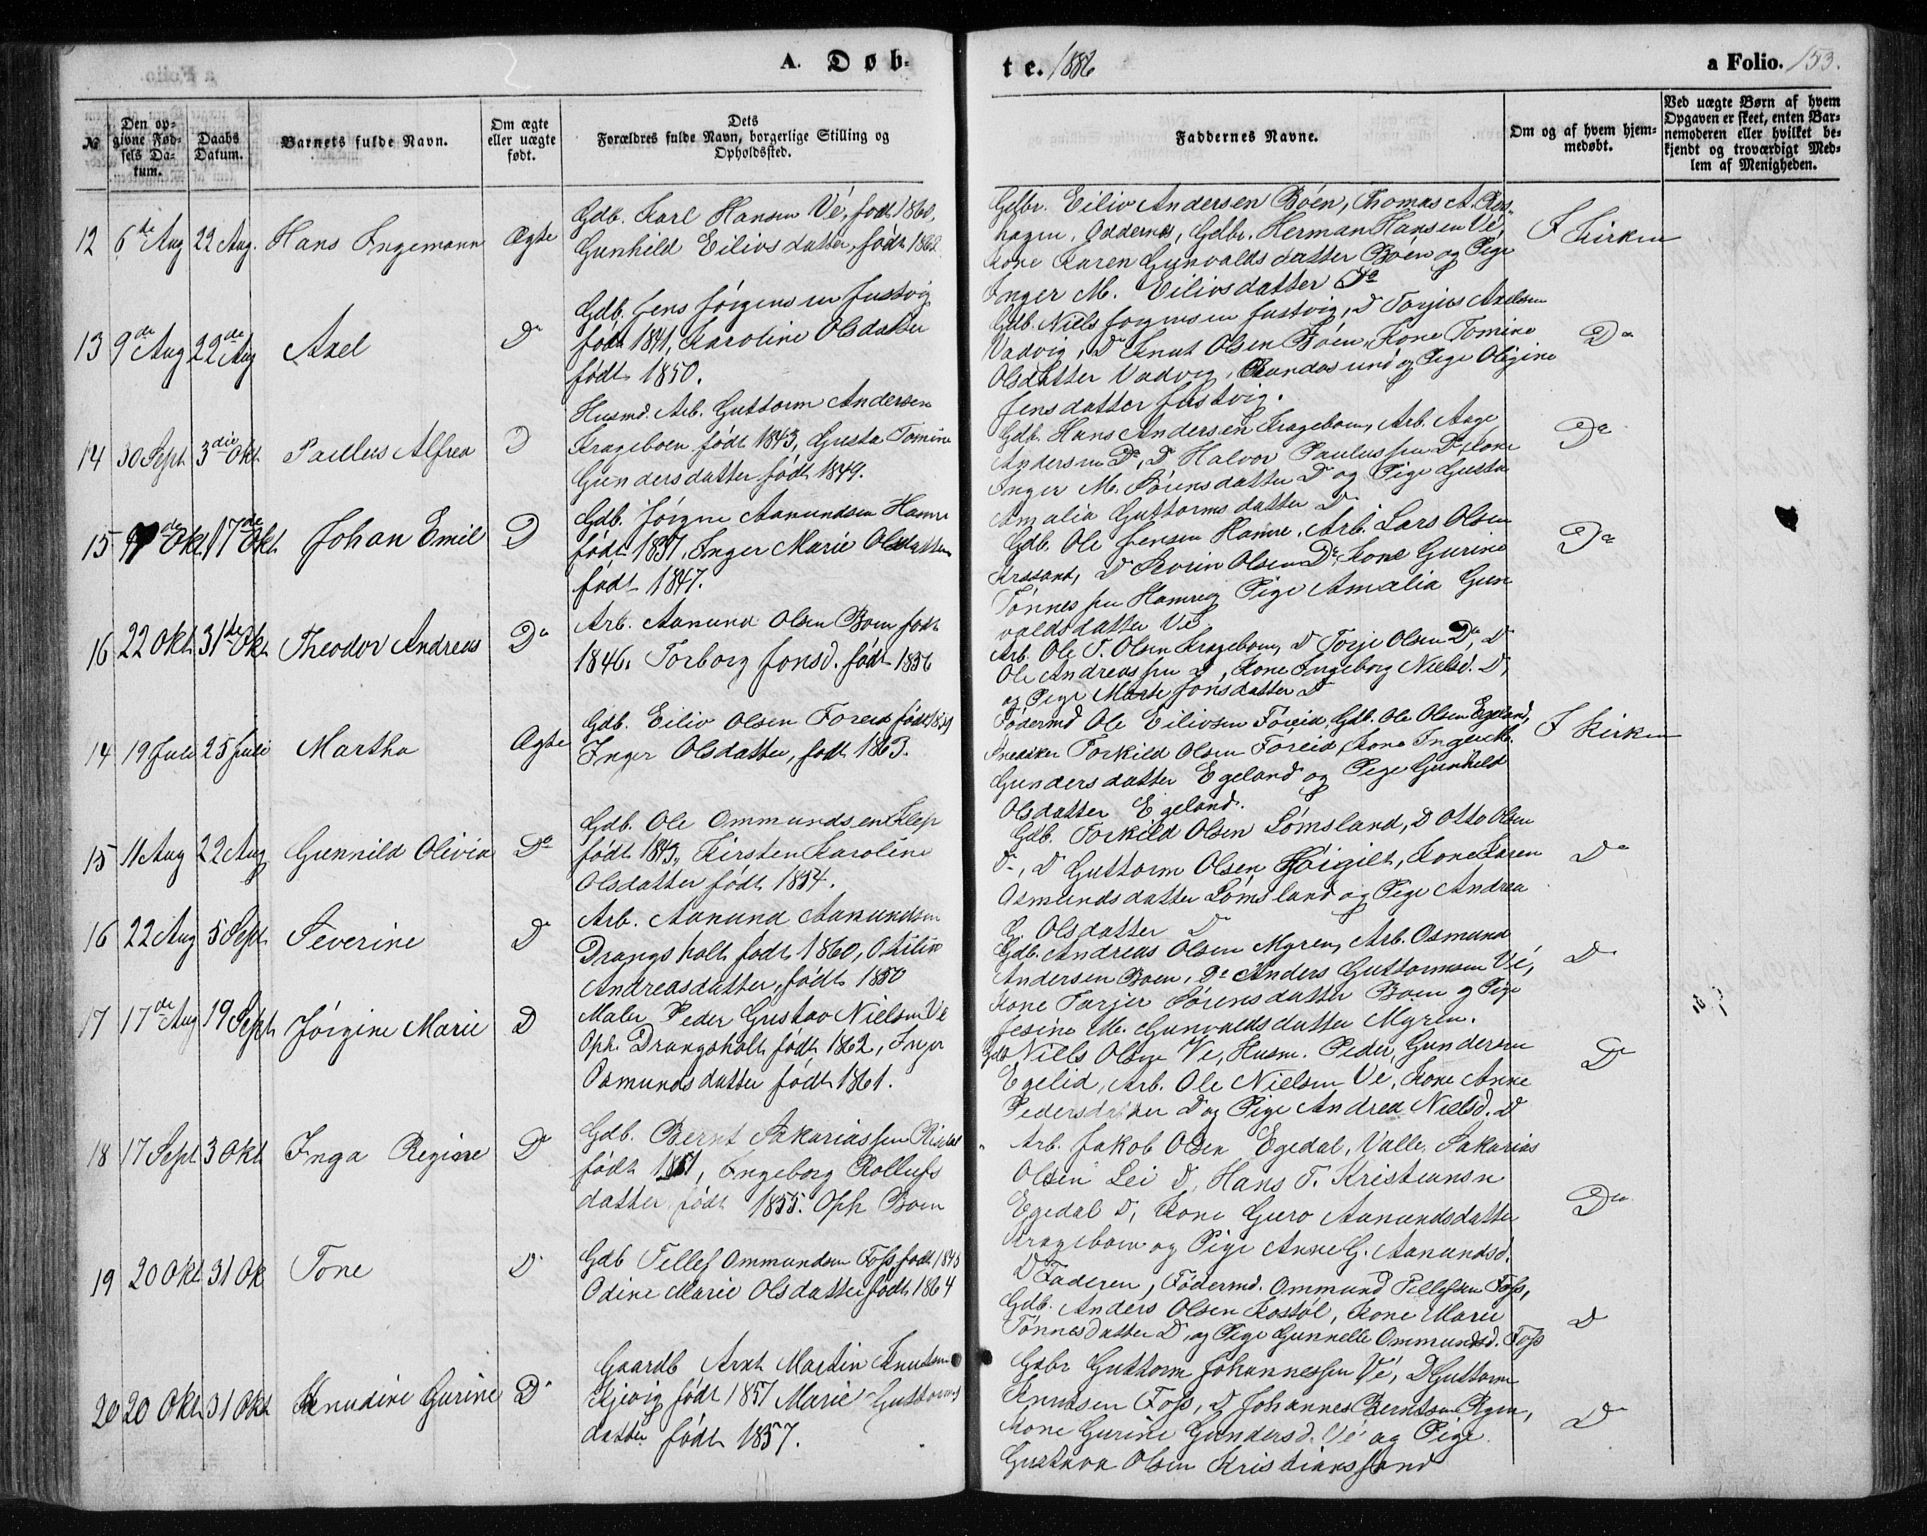 A. Døb-
te. 1886
a Folio. 153.
№
Den opgivne Fødsels Datum.
Daabs Datum.
Barnets fulde Navn.
Om ægte eller uægte født.
Dets Forældres fulde Navn, borgerlige Stilling og Opholdssted.
Faddernes Navne.
Om og af hvem hjemmedøbt.
Ved uægte Børn af hvem Opgaven er skeet, enten Barnemoderen eller hvilket bekjendt og troværdigt Medlem af Menigheden.
12 6te Aug 22 Aug. Hans Ingemann Ægte
Gdb. Karl Hansen Vé, født 1860,
Gunhild Eilivsdatter, født 1862
Gdbr. Eiliv Andersen Bóen, Thomas A. Ros-
hagen, Oddernes, Gdbr. Herman Hansen Vé,
Kone Karen Gunvaldsdatter Bóen og Pige
Inger M. Eilivsdatter Do
I Kirken
13 9de Aug 22de Aug Axel Do
Gdb. Jens Jórgensen Justvig
født 1841, Karoline Olsdatter
født 1850.
Gdb. Niels Jorgensen Justvig, D Torjus Axelsen
Vadvig, D Knut Olsen Bóen, Kone Tomine
Olsdatter Vadvig, Randøsund og Pige Oligine
Jensdatter Justvig.
Do
14 30 Sept 3die Okt Paulus Alfred D
Husmd. Arb. Guttorm Andersen
Krageboen født 1843, Gusta Tomine
Gundersdatter født 1849.
Gdb. Hans Andersen Krageboen, Arb. Aage
Andersen Do, D Halvor Paulussen Do, Kone
Inger M. Sórensdatter D og Pige Gusta
Amalia Guttormsdatter D
Do
15 de Okt 17de Okt Johan Emil D
Gdb. Jórgen Aanundsen Hamre
født 1851, Inger Marie Olsdatter
født 1847.
Gdb. Ole Jensen Hamre, Arb. Lars Olsen
Krssand, D Severin Olsen Do, Kone Gurine
Tónnessen Hamre og Pige Amalia Gun
valdsdatter Vé
Do
16 22 Okt 31te Okt Theodor Andreas Do
Arb. Aanund Olsen Boen født
1846, Torborg Jonsd. født 1856
Arb. Ole T. Olsen Krageboen, D Torje Olsen Do, D
Ole Andreassen D, Kone Ingeborg Nielsd. D,
og Pige Marte Jonsdatter D
14 19 Juli 25 Juli Martha Ægte
Gdb. Eiliv Olsen Foreid født 1859
Inger Olsdatter, født 1863.
Fødermd Ole Eilivsen Fóreid, Gdb. Ole Olsen Egeland,
Snedker Torkild Olsen Fóreid, Kone Inger M.
Gundersdatter Egeland og Pige Gunhild
Olsdatter Egeland.
I Kirken
15 11 Aug 22 Aug Gunnild Olivia Do
Gdb. Ole Ommundsen Klep
født 1843, Kirsten Karoline
Olsdatter født 1854.
Gdb. Torkild Olsen Lómsland, D Otto Olsen
D, D Guttorm Olsen Hóigilt, Kone Karen
Osmundsdatter Lómsland og Pige Andrea
G. Olsdatter D
Do
16 22 Aug 5 Sept Severine D
Arb. Aanund Aanundsen
Drangsholt født 1860, Otilie
Andreasdatter, født 1850
Gdb. Andreas Olsen Myren, Arb. Osmund
Andersen Boen, Do Anders Guttormsen Vé,
Kone Tarjer Sórensdatter Boen og Pige
Jesine M. Gunvaldsdatter Myren.
D
17 17de Aug 19 Sept Jórgine Marie D
Maler Peder Gustav Nielsen Ve
Oph. Drangsholt født 1862, Inger
Osmundsdatter født 1861.
Gdb Niels Olsen Ve, Husm. Peder Gundersen
Egelid, Arb. Ole Nielsen Vé, Kone Anne
Pedersdatter D og Pige Andrea Nielsd. D
D
18 17 Sept 3 Okt Inga Regine D
Gdb. Bernt Sakariassen
født 1851, Ingeborg Rollufs
datter født 1855. Oph Boen
Arb. Jakob Olsen Egedal, Valle, Sakarias
Olsen Lei D, Hans T. Kristiansen
Egedal D, Kone Guro Aanundsdatter
Krageboen og Pige Anne G. Aanundsd.
Do
19 20 Okt 31 Ok Tone D
Gdb Tellef Ommundsen Foss født 1848
Odine Marie Olsdatter født 1864
D Faderen, Fødermd. Ommund Tellefsen Foss,
Gdb. Anders Olsen Kostøl, Kone Marie
Tønnesdatter D, og Pige Gunnelle Ommundsd. Foss
D
20 20 Okt 31 Okt Knudine Gurine D
Gaardb Arnt Martin Knutsen
Kjevig født 1851 Marie Guttorms
datter født 1857.
Gdbr Guttorm Johannessen Vé, D Guttorm
Knudsen Foss, D Johannes Berntsen Ryen,
Kone Gurine Gundersd. Vé og Pige
Gustava Olsen Kristianssand
D